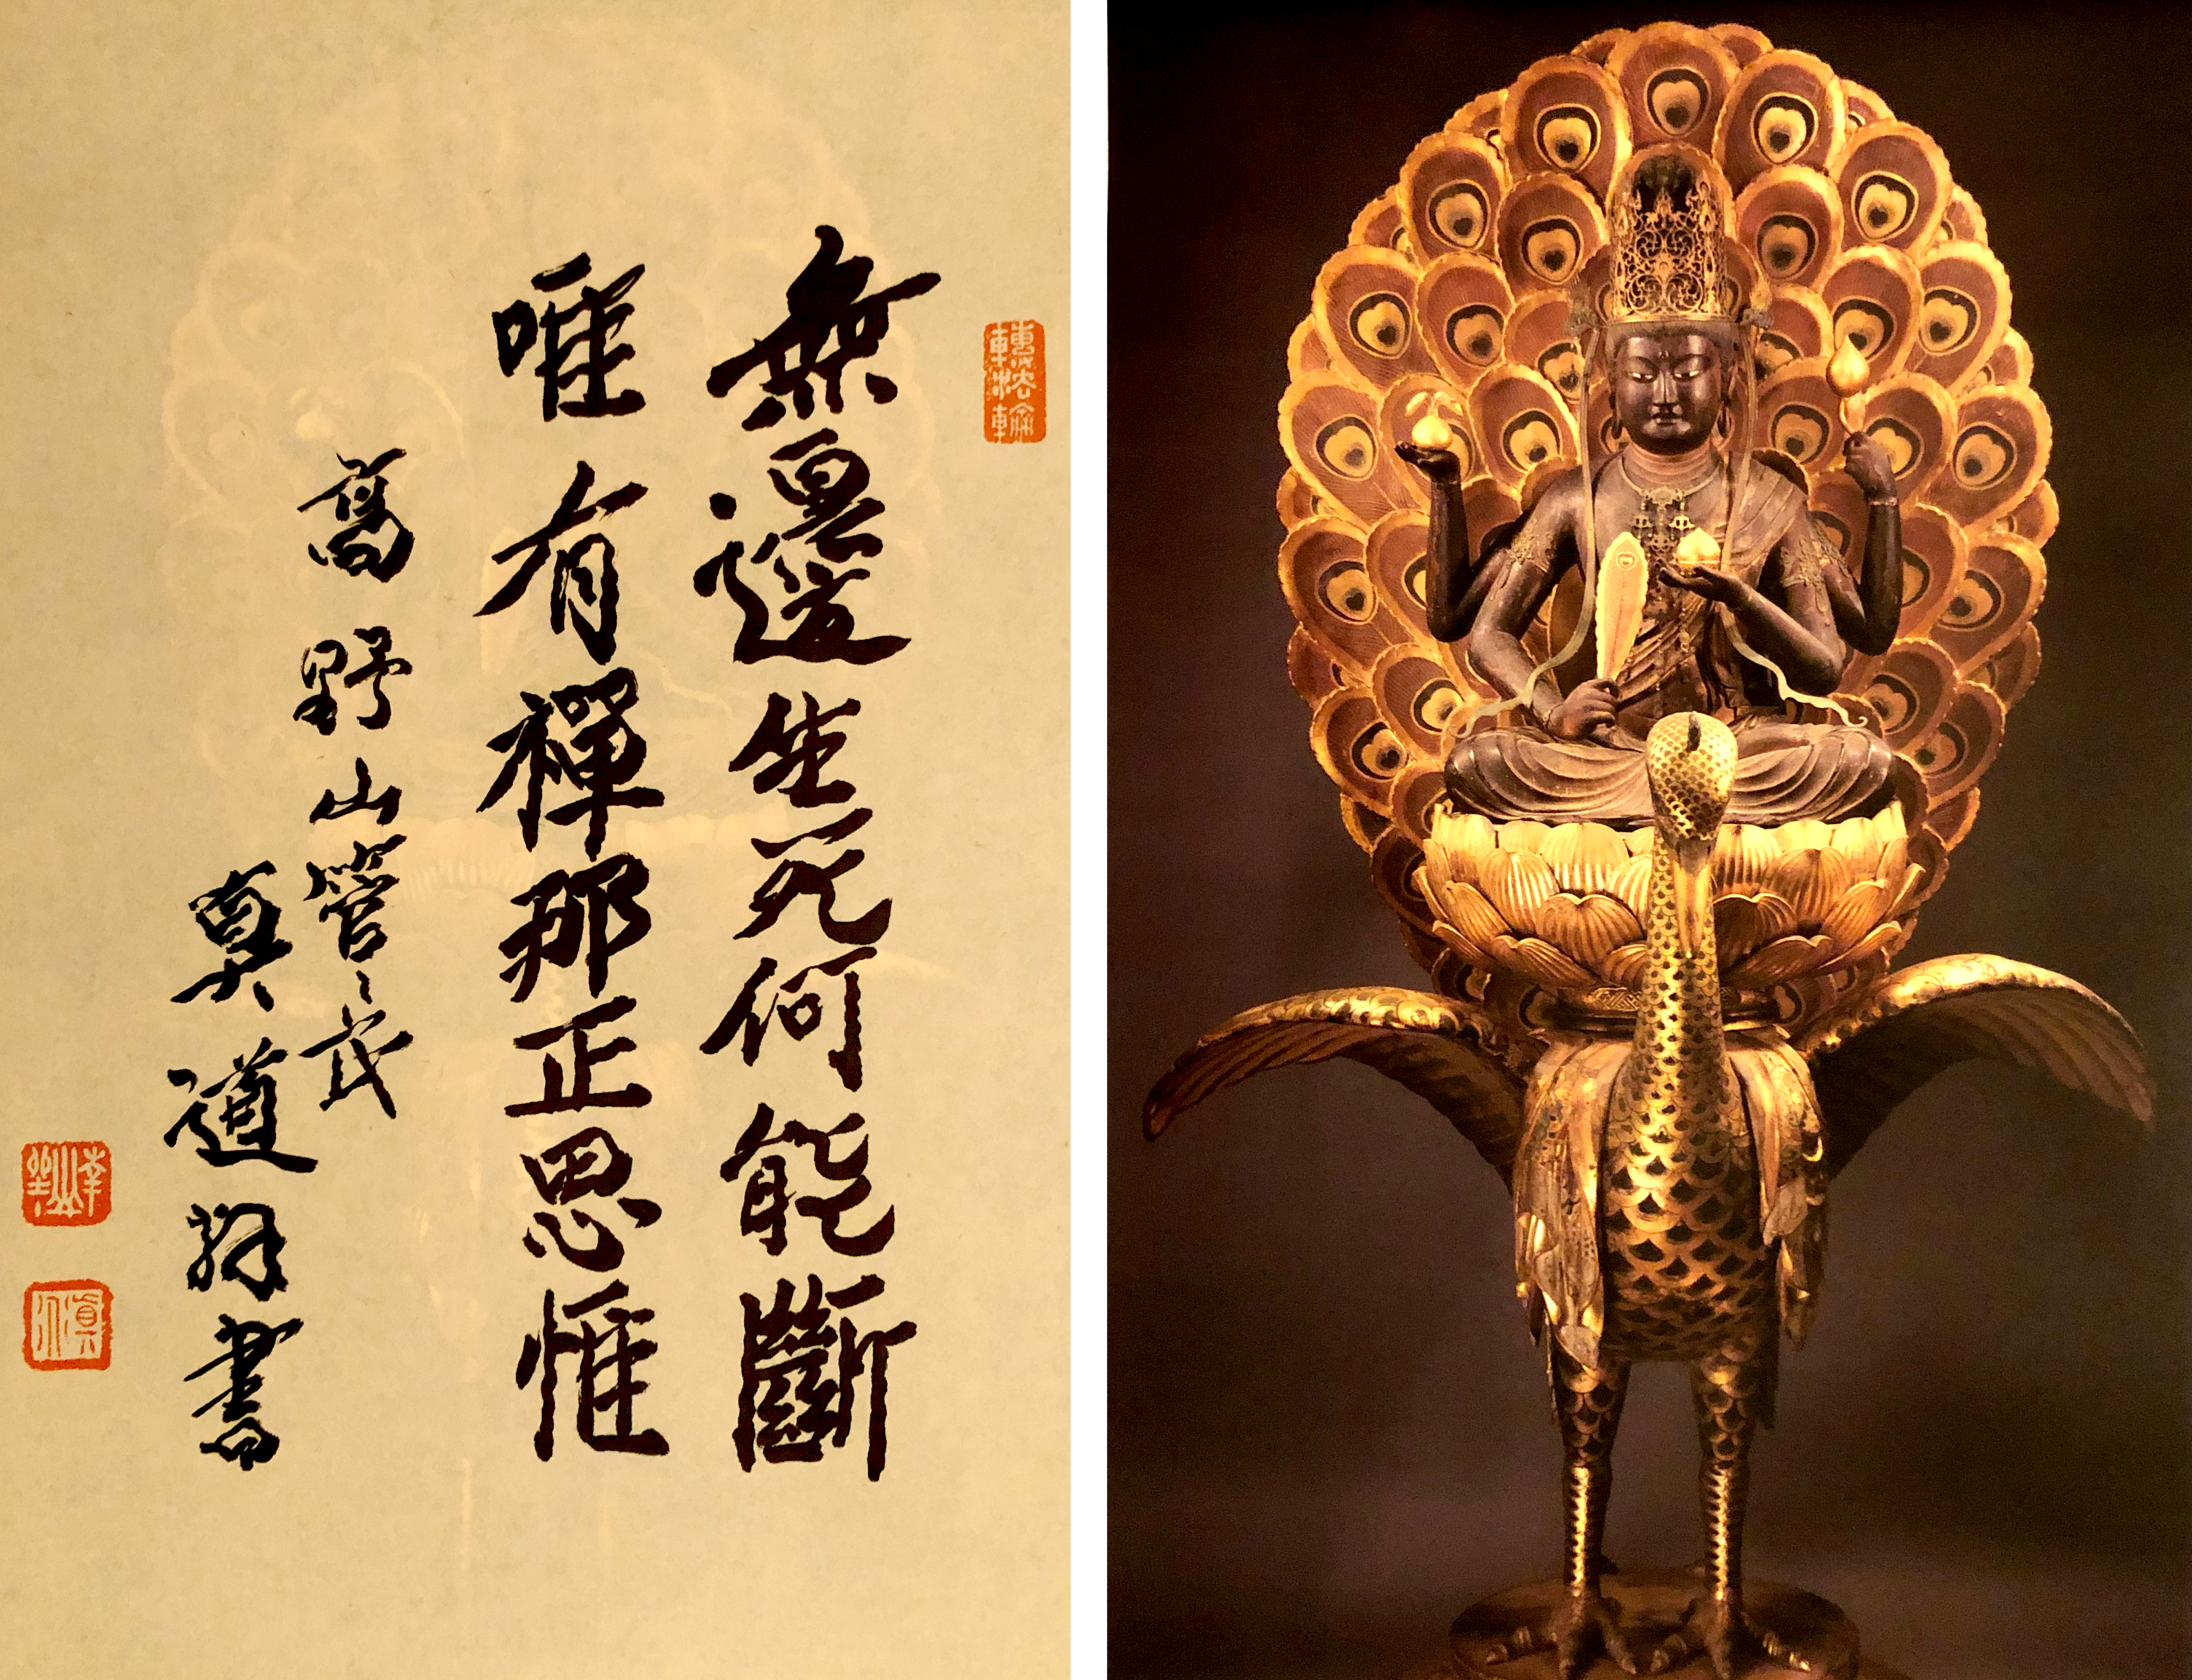 轉法輪
無邊生死何能斷
唯有禪那正思惟
高野山管長
真道拜書